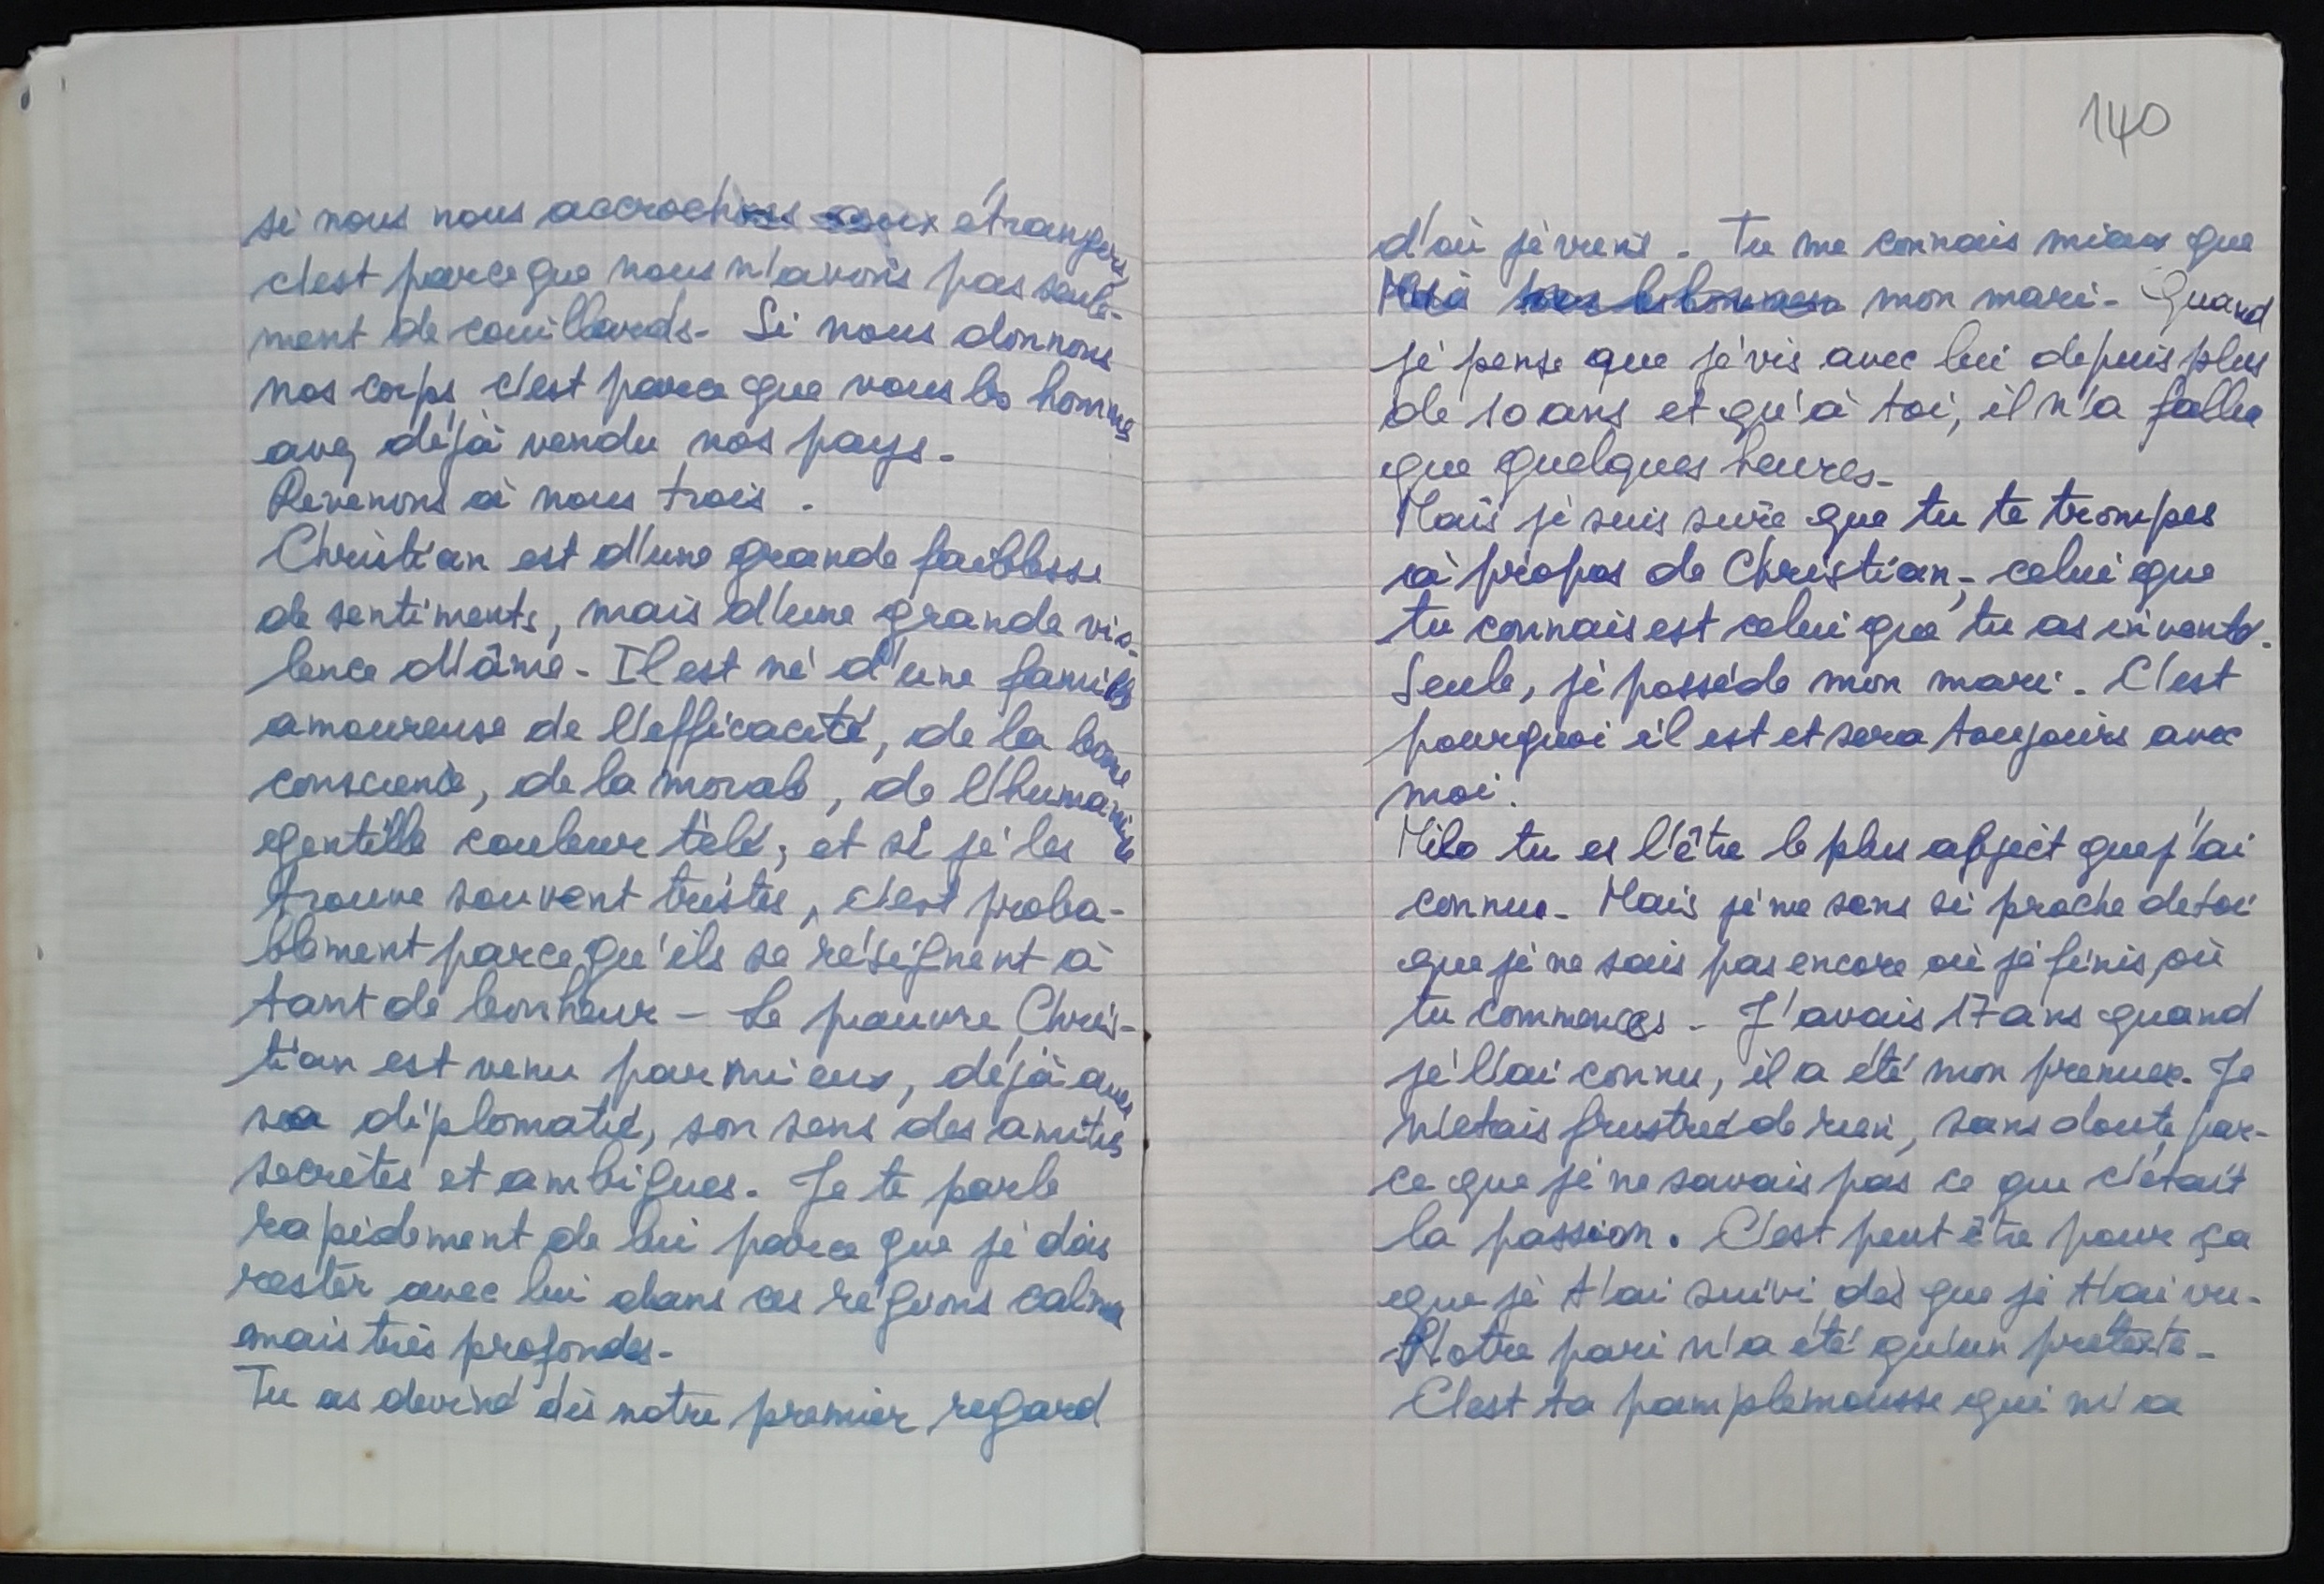 si nous nous accrochons aux étrangers,
c'est parce que nous n'avons pas seule-
ment de couillards. Si nous donnons
nos corps, c'est parce que vous les hommes
avez déjà vendu nos pays.
Revenons à nous trois.
Christian est d'une grande faiblesse
de sentiments, mais d'une grande vio-
lence d'âme. Il est né d'une famille
amoureuse de l'efficacité, de la bonne
conscience, de la morale, de l'humanisme
gentille couleur télé, et si je les
trouve souvent tristes, c'est proba-
blement parce qu'ils se résignent à
tant de bonheur - Le pauvre Chris-
tian est venu parmi eux, déjà avec
sa diplomatie, son sens des amitiés
secrètes et ambigues. Je te parle
rapidement de lui parce que je dois
rester avec lui dans ces régions calmes
mais très profondes.
Tu as deviné dès notre premier regard
140
d'où je viens. Tu me connais mieux que
mon mari. Quand
je pense que je vis avec lui depuis plus
de 10 ans et qu'à toi, il n'a fallu
que quelques heures.
Mais je suis sûre que tu te trompes
à propos de Christian, celui que
tu connais est celui que tu as inventé.
Seule, je possède mon mari. C'est
pourquoi il est et sera toujours avec
moi.
Milo tu es l'être le plus abject que j'ai
connue. Mais je me sens si proche de toi
que je ne sais pas encore où je finis, où
tu commences. J'avais 17 ans quand
je l'ai connu, il a été mon premier. Je
n'etais frustrée de rien, sans doute, par-
ce que je ne savais pas ce que c'était
la passion. C'est peut être pour ça
que je t'ai suivi dès que je t'ai vu.
Notre pari n'a été qu'un prétexte.
C'est ta pamplemousse qui m'a